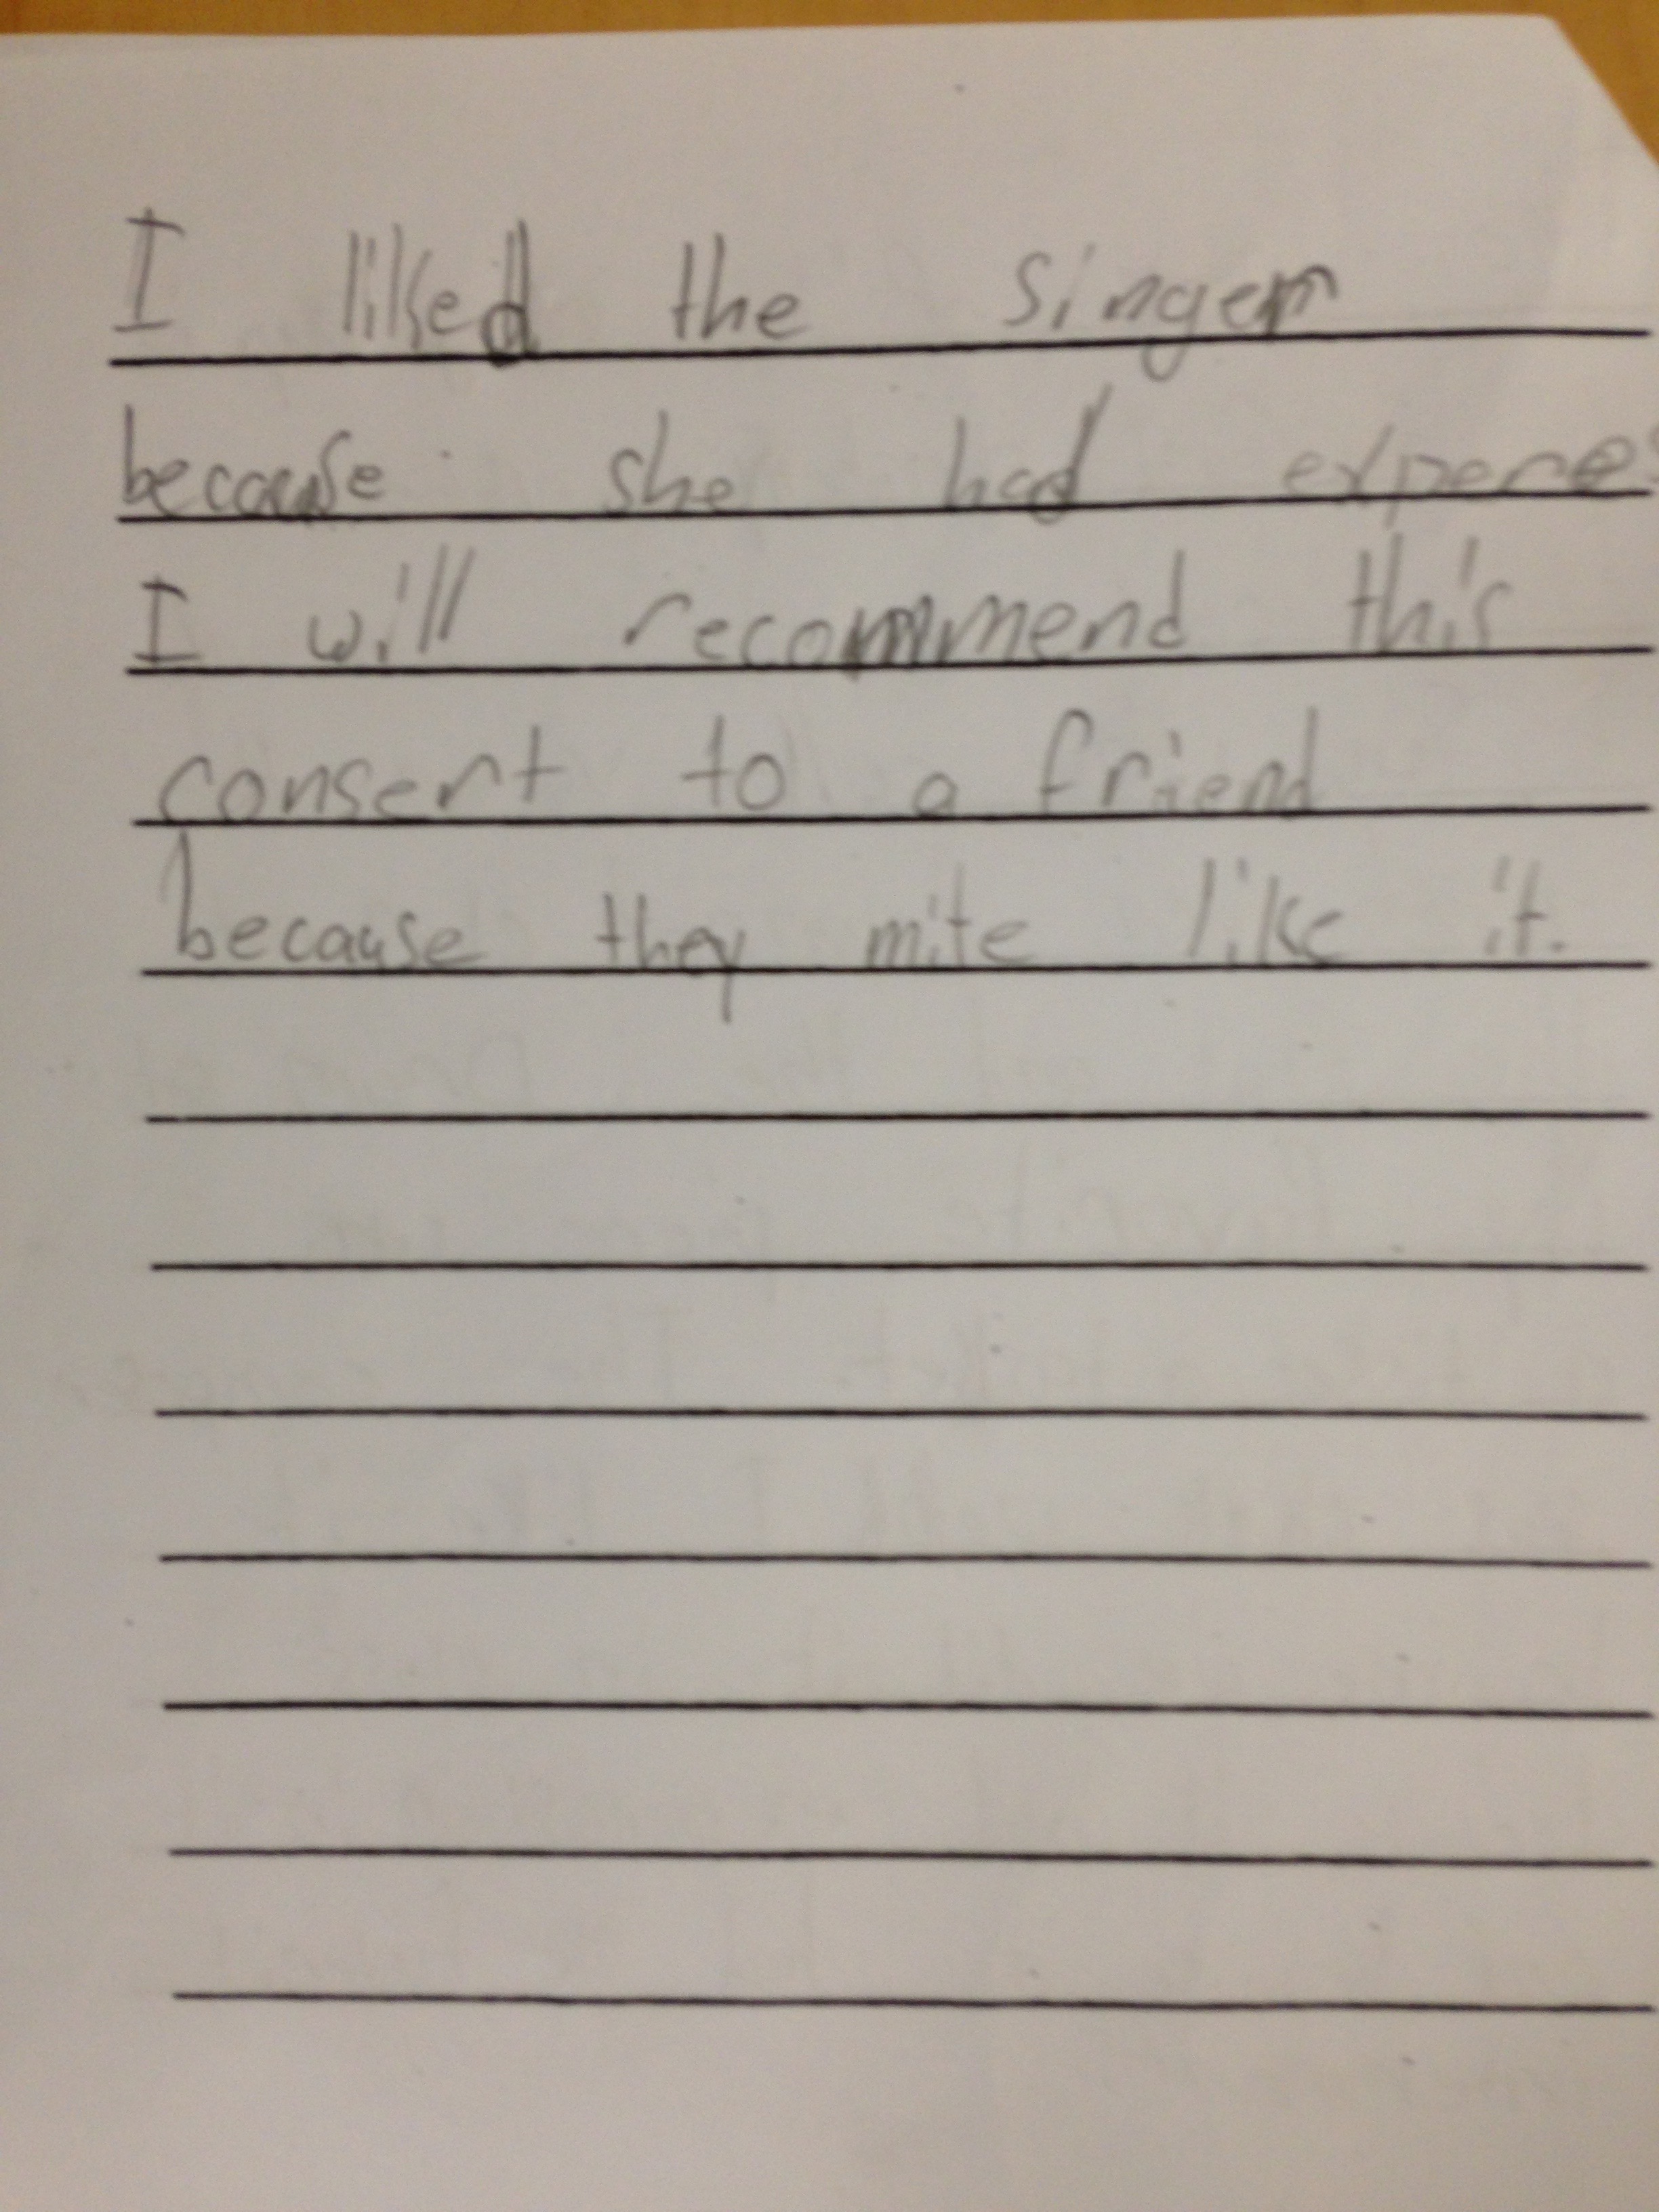 I liked the singer
because she had
I will recommend this
consert to a friend
because they mite like it.